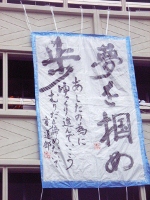 夢を掴め
歩
あしたの為に
ゆっくり進んでいこう
書道部